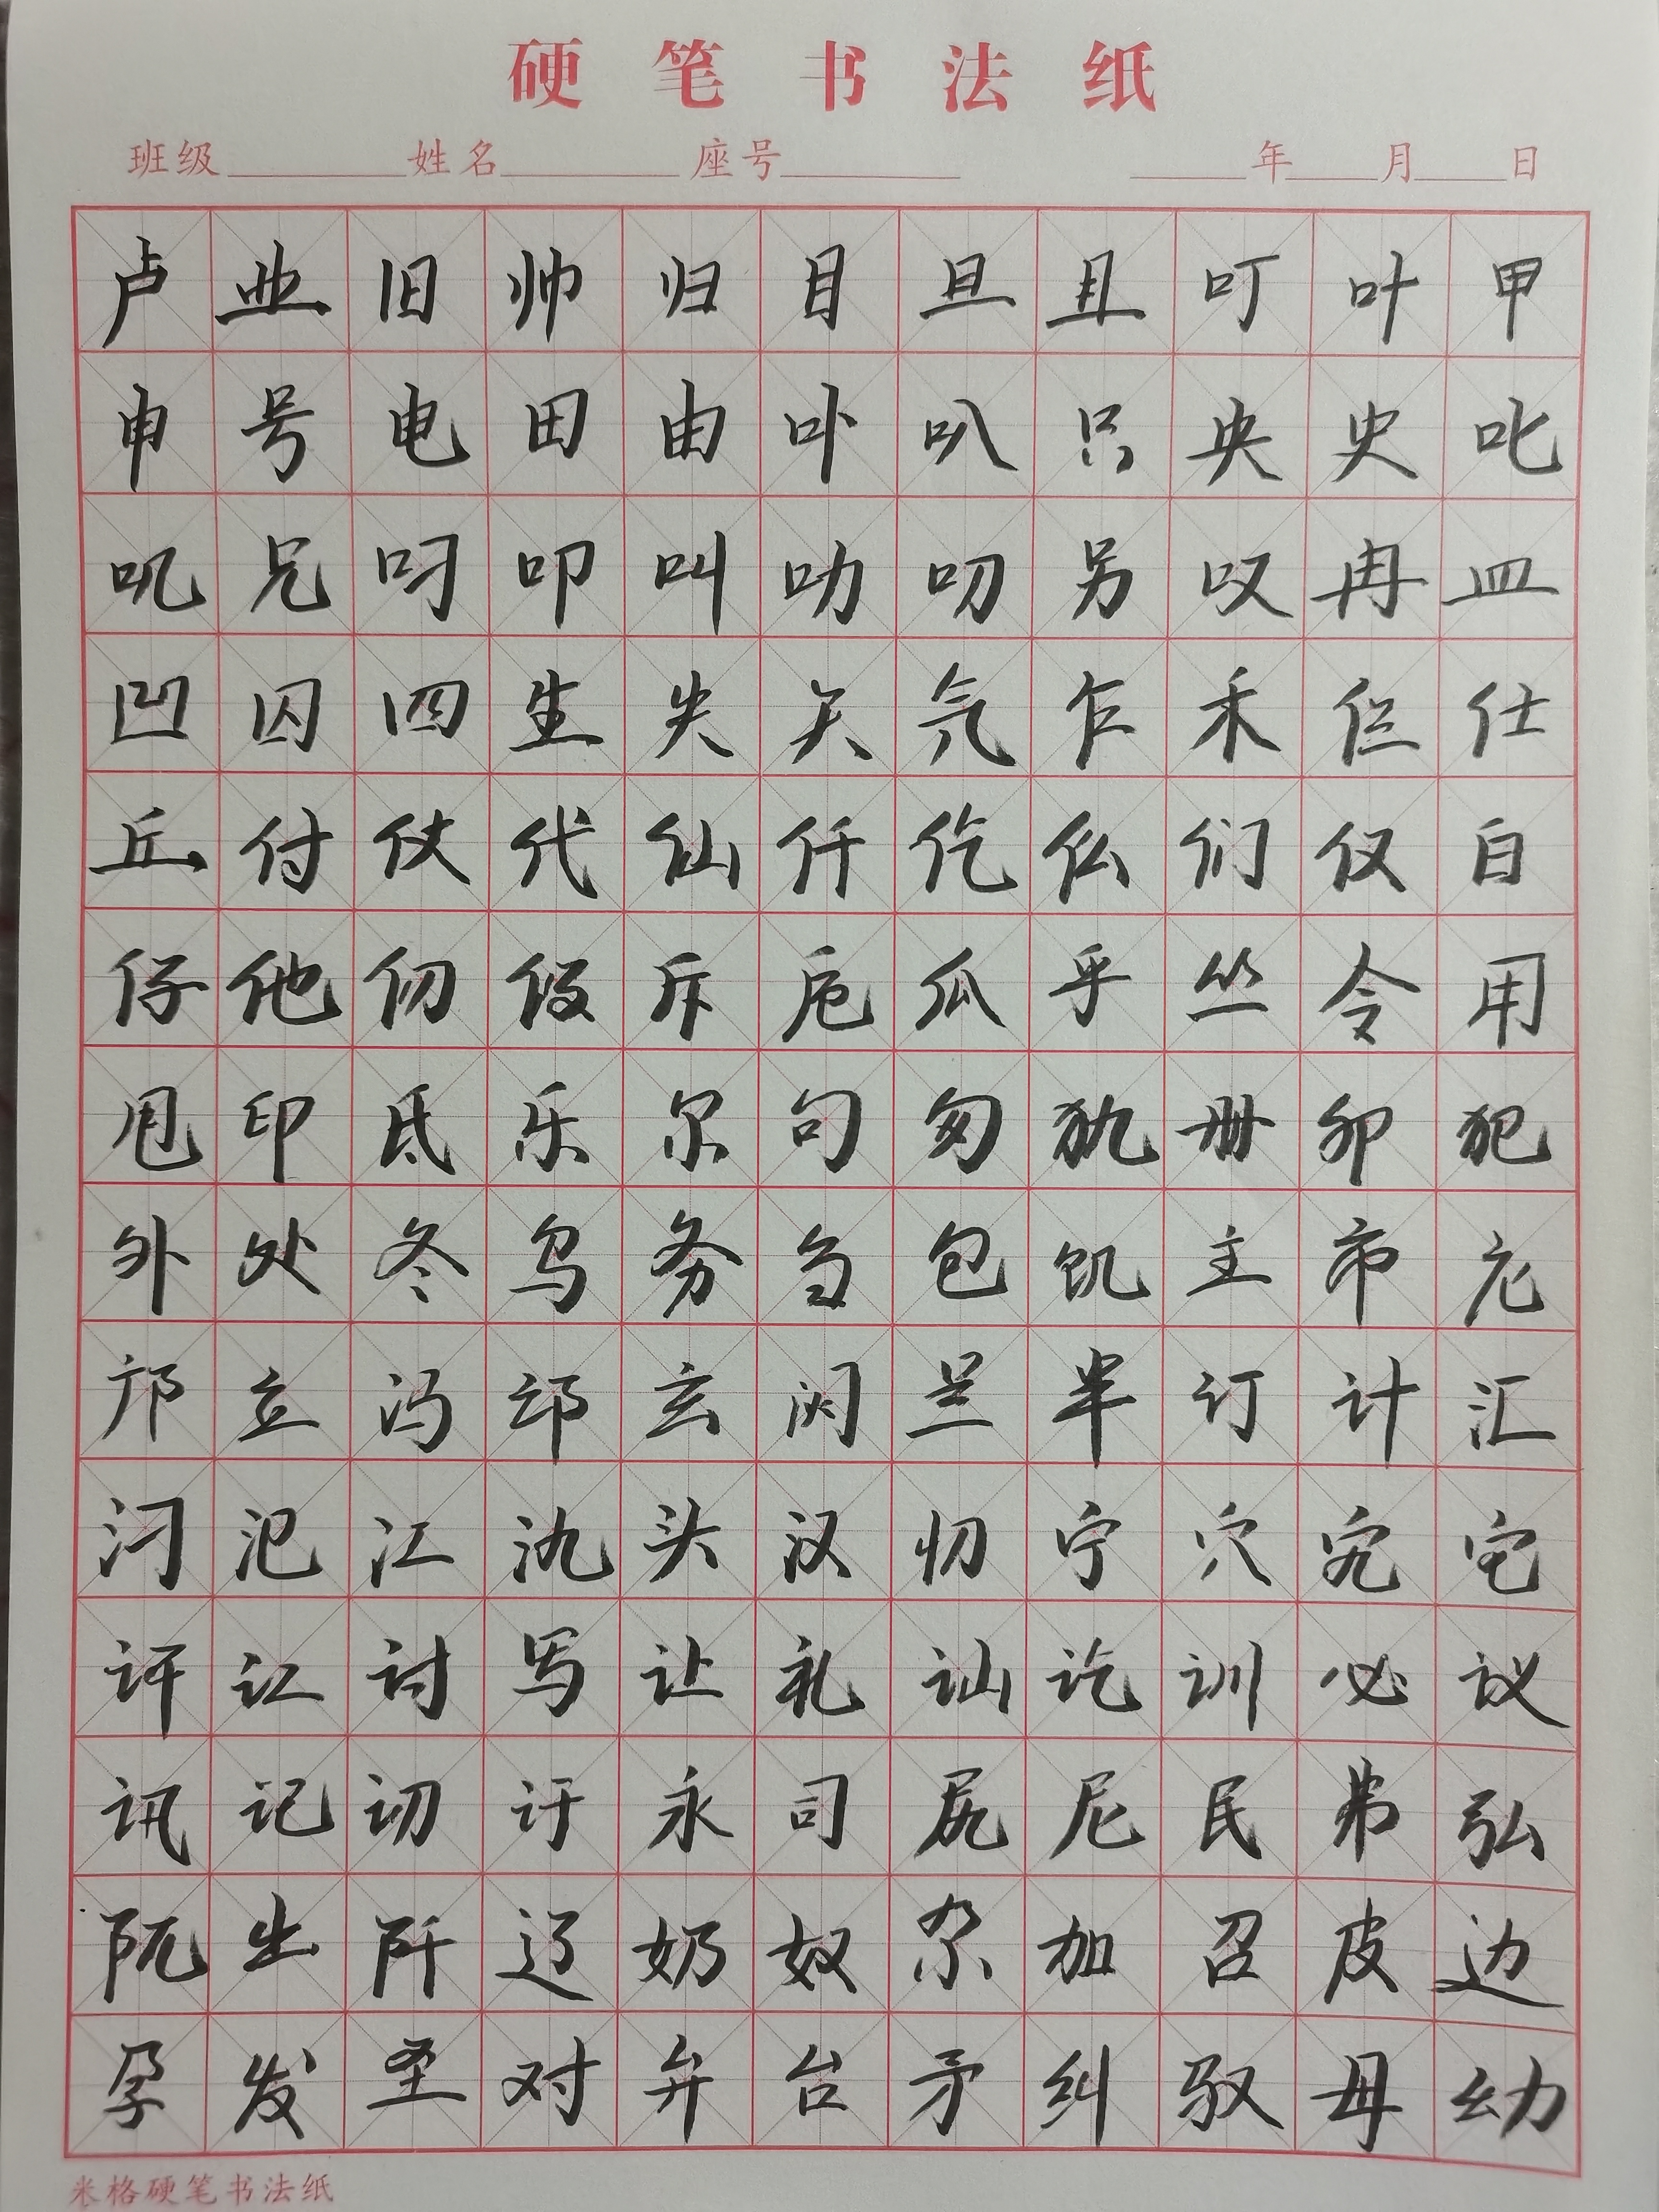 硬笔书法纸
班级 姓名 座号 年 月 日
卢业旧帅归目旦且叮叶甲
申号电田由卟叭只央史叱
叽兄叼叩叫叻叨另叹冉皿
凹囚四生失矢气乍禾仨仕
丘付仗代仙仟仡仫们仪白
仔他仞斥卮瓜乎丛令用
甩印氐乐尔句匆犰册卯犯
外处冬鸟务刍包饥主市庀
邝立冯邙玄闪兰半订计汇
汈氾江氿头汉忉宁穴宄它
讦讧讨写让礼讪讫训必议
讯记讱讶永司尻尼民弗弘
阮出阡辽奶奴尕加召皮边
孕发圣对弁台矛纠驭母幼
米格硬笔书法纸